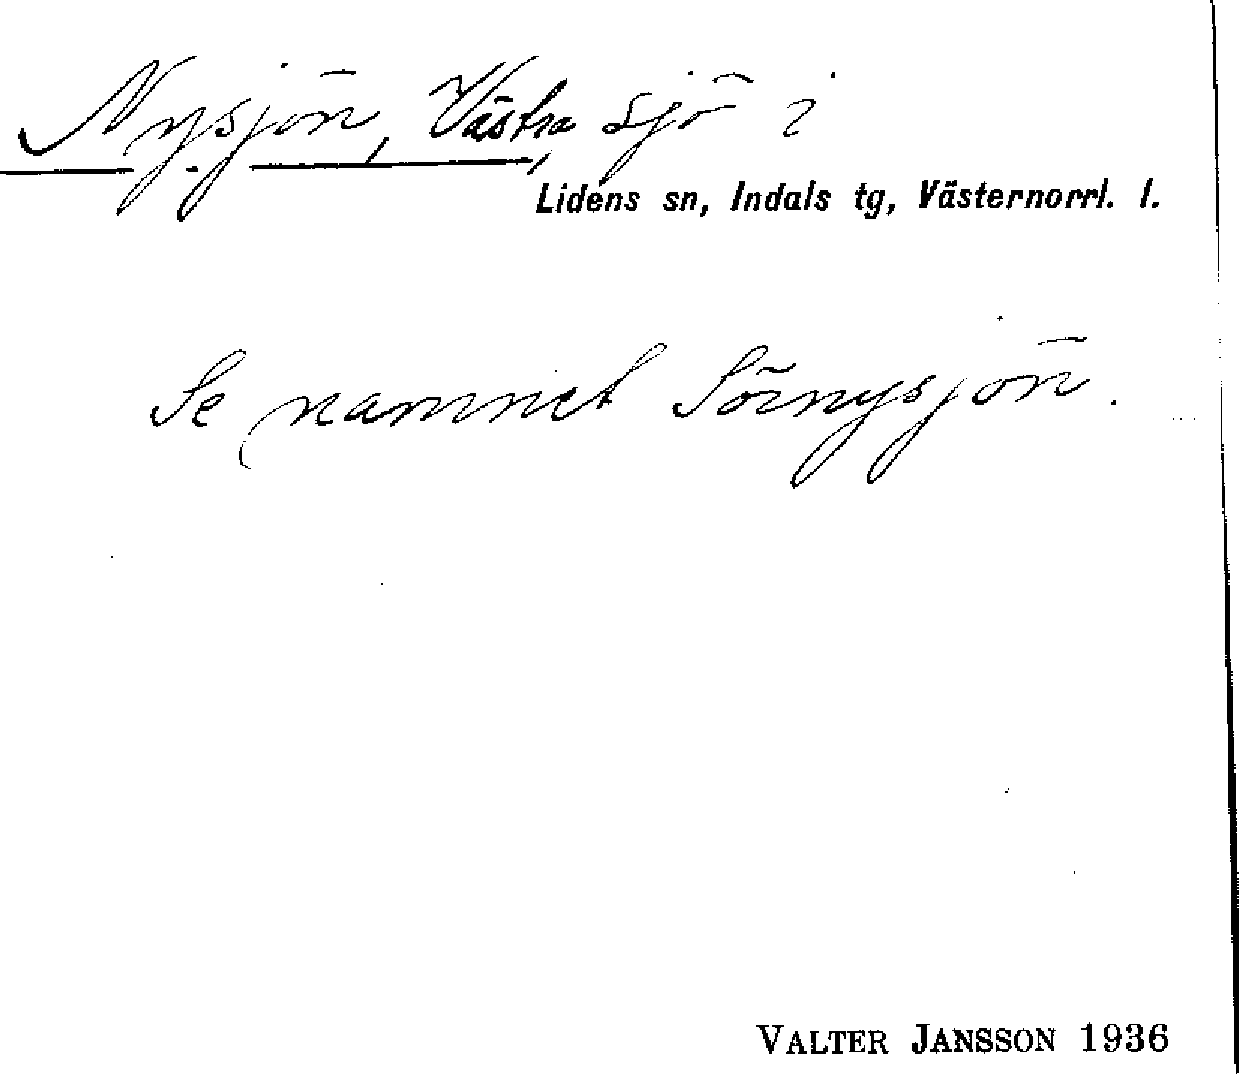 Nysjön, Västra, sjö i
Lidens sn, Indals tg, Västernorrl. l.
Se namnet Sörnysjön.
VALTER JANSSON 1936